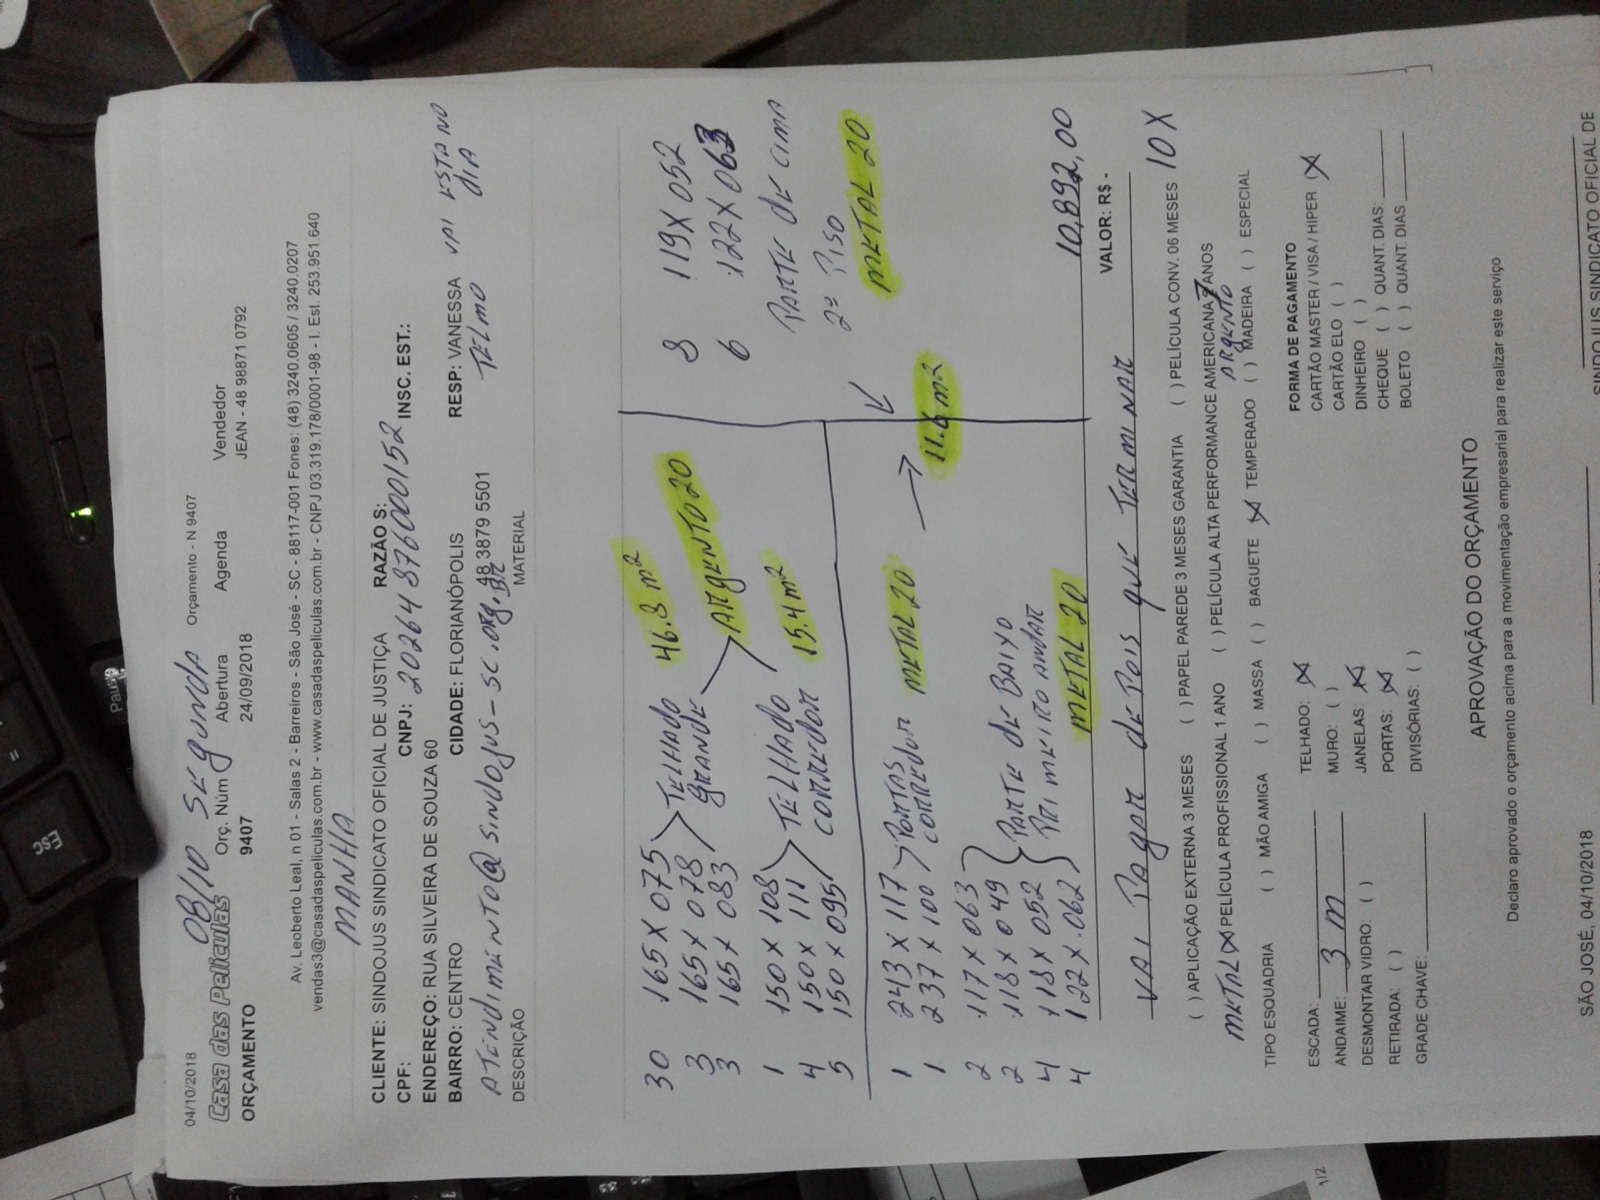 04/10/2018
08/10 SEGUNDA
MANHÃ
Orçamento - N 9407
Casa das Películas
ORÇAMENTO
Orç. Núm
9407
Abertura
24/09/2018
Agenda
Vendedor
JEAN - 48 98871 0792
Av. Leoberto Leal, n 01 - Salas 2 - Barreiros - São José - SC - 88117-001 Fones: (48) 3240.0605 / 3240.0207
vendas3@casadaspeliculas.com.br - www.casadaspeliculas.com.br - CNPJ 03.319.178/0001-98 - I. Est. 253.951.640
CLIENTE: SINDOJUS SINDICATO OFICIAL DE JUSTIÇA RAZÃO S:
CPF: CNPJ: 20264876000152 INSC. EST.:
ENDEREÇO: RUA SILVEIRA DE SOUZA 60
BAIRRO: CENTRO CIDADE: FLORIANÓPOLIS RESP: VANESSA VAI ESTA NO DIA
TELMO
ATENDIMENTO@SINDOJUS-SC.ORG.BR 48 3879 5501
DESCRIÇÃO MATERIAL
30 165 X 075 TELHADO 46.8 m²
3 165 X 078 GRANDE
3 165 X 083 ARGENTO 20
1 150 X 108 TELHADO
4 150 X 111 CORREDOR 15.4 m²
5 150 X 095
8 119 X 052
6 122 X 063
PARTE DE CIMA
2º PISO
METAL 20
1 243 X 117 PORTAS METAL 20
1 237 X 100 CORREDOR
11.6 m²
2 117 X 063
2 118 X 049 PARTE DE BAIXO
4 118 X 052 PRIMEIRO ANDAR
4 122 X 062 METAL 20
10.892,00
VALOR: R$ -
VAI PAGAR DEPOIS QUE TERMINAR
10 X
( ) APLICAÇÃO EXTERNA 3 MESES ( ) PAPEL PAREDE 3 MESES GARANTIA ( ) PELÍCULA CONV. 06 MESES
METAL (X) PELÍCULA PROFISSIONAL 1 ANO ( ) PELÍCULA ALTA PERFORMANCE AMERICANA 7 ANOS
ARGENTO
TIPO ESQUADRIA ( ) MÃO AMIGA ( ) MASSA ( ) BAGUETE (X) TEMPERADO ( ) MADEIRA ( ) ESPECIAL
ESCADA:
ANDAIME: 3 m
DESMONTAR VIDRO: ( )
RETIRADA: ( )
GRADE CHAVE:
TELHADO: (X)
MURO: ( )
JANELAS: (X)
PORTAS: (X)
DIVISÓRIAS: ( )
FORMA DE PAGAMENTO
CARTÃO MASTER / VISA / HIPER (X)
CARTÃO ELO ( )
DINHEIRO ( )
CHEQUE ( ) QUANT. DIAS:
BOLETO ( ) QUANT. DIAS
APROVAÇÃO DO ORÇAMENTO
Declaro aprovado o orçamento acima para a movimentação empresarial para realizar este serviço
SÃO JOSÉ, 04/10/2018
SINDOJUS SINDICATO OFICIAL DE
1/2
ESC
Pause